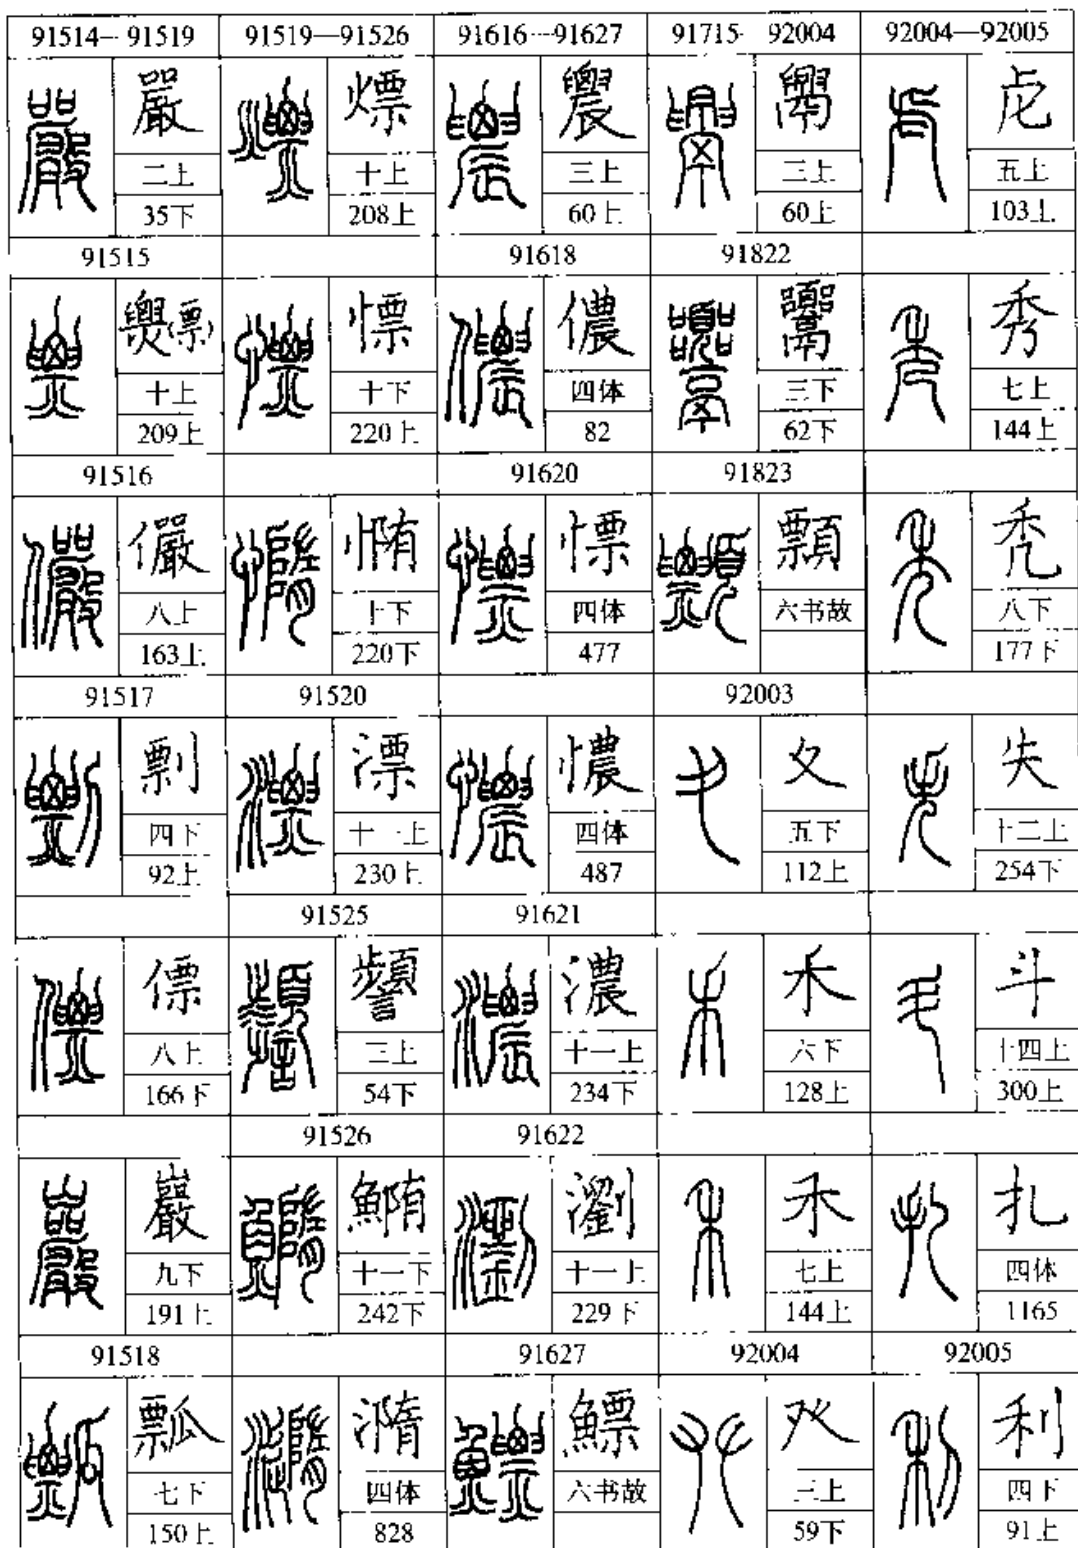 91514—91519
嚴
二上
35下
91515
㷠(票)
十上
209上
91516
儼
八上
163上
91517
剽
四下
92上
僄
八上
166下
巖
九下
191上
91518
瓢
七下
150上
91519—91526
熛
十上
208上
慓
十下
220上
十下
220下
91520
漂
十一上
230上
91525
三上
54下
91526
十一下
242下
四体
828
91616—91627
三上
60上
91618
儂
四体
82
91620
慓
四体
477
憹
四体
487
91621
濃
十一上
234下
91622
瀏
十一上
229下
91627
鰾
六书故
91715 92004
三上
60上
91822
三下
62下
91823
顠
六书故
92003
夂
五下
112上
𥝌
六下
128上
禾
七上
144上
92004
癶
三上
59下
92004—92005
虍
五上
103上
秀
七上
144上
秃
八下
177下
失
十二上
254下
斗
十四上
300上
扎
四体
1165
92005
利
四下
91上